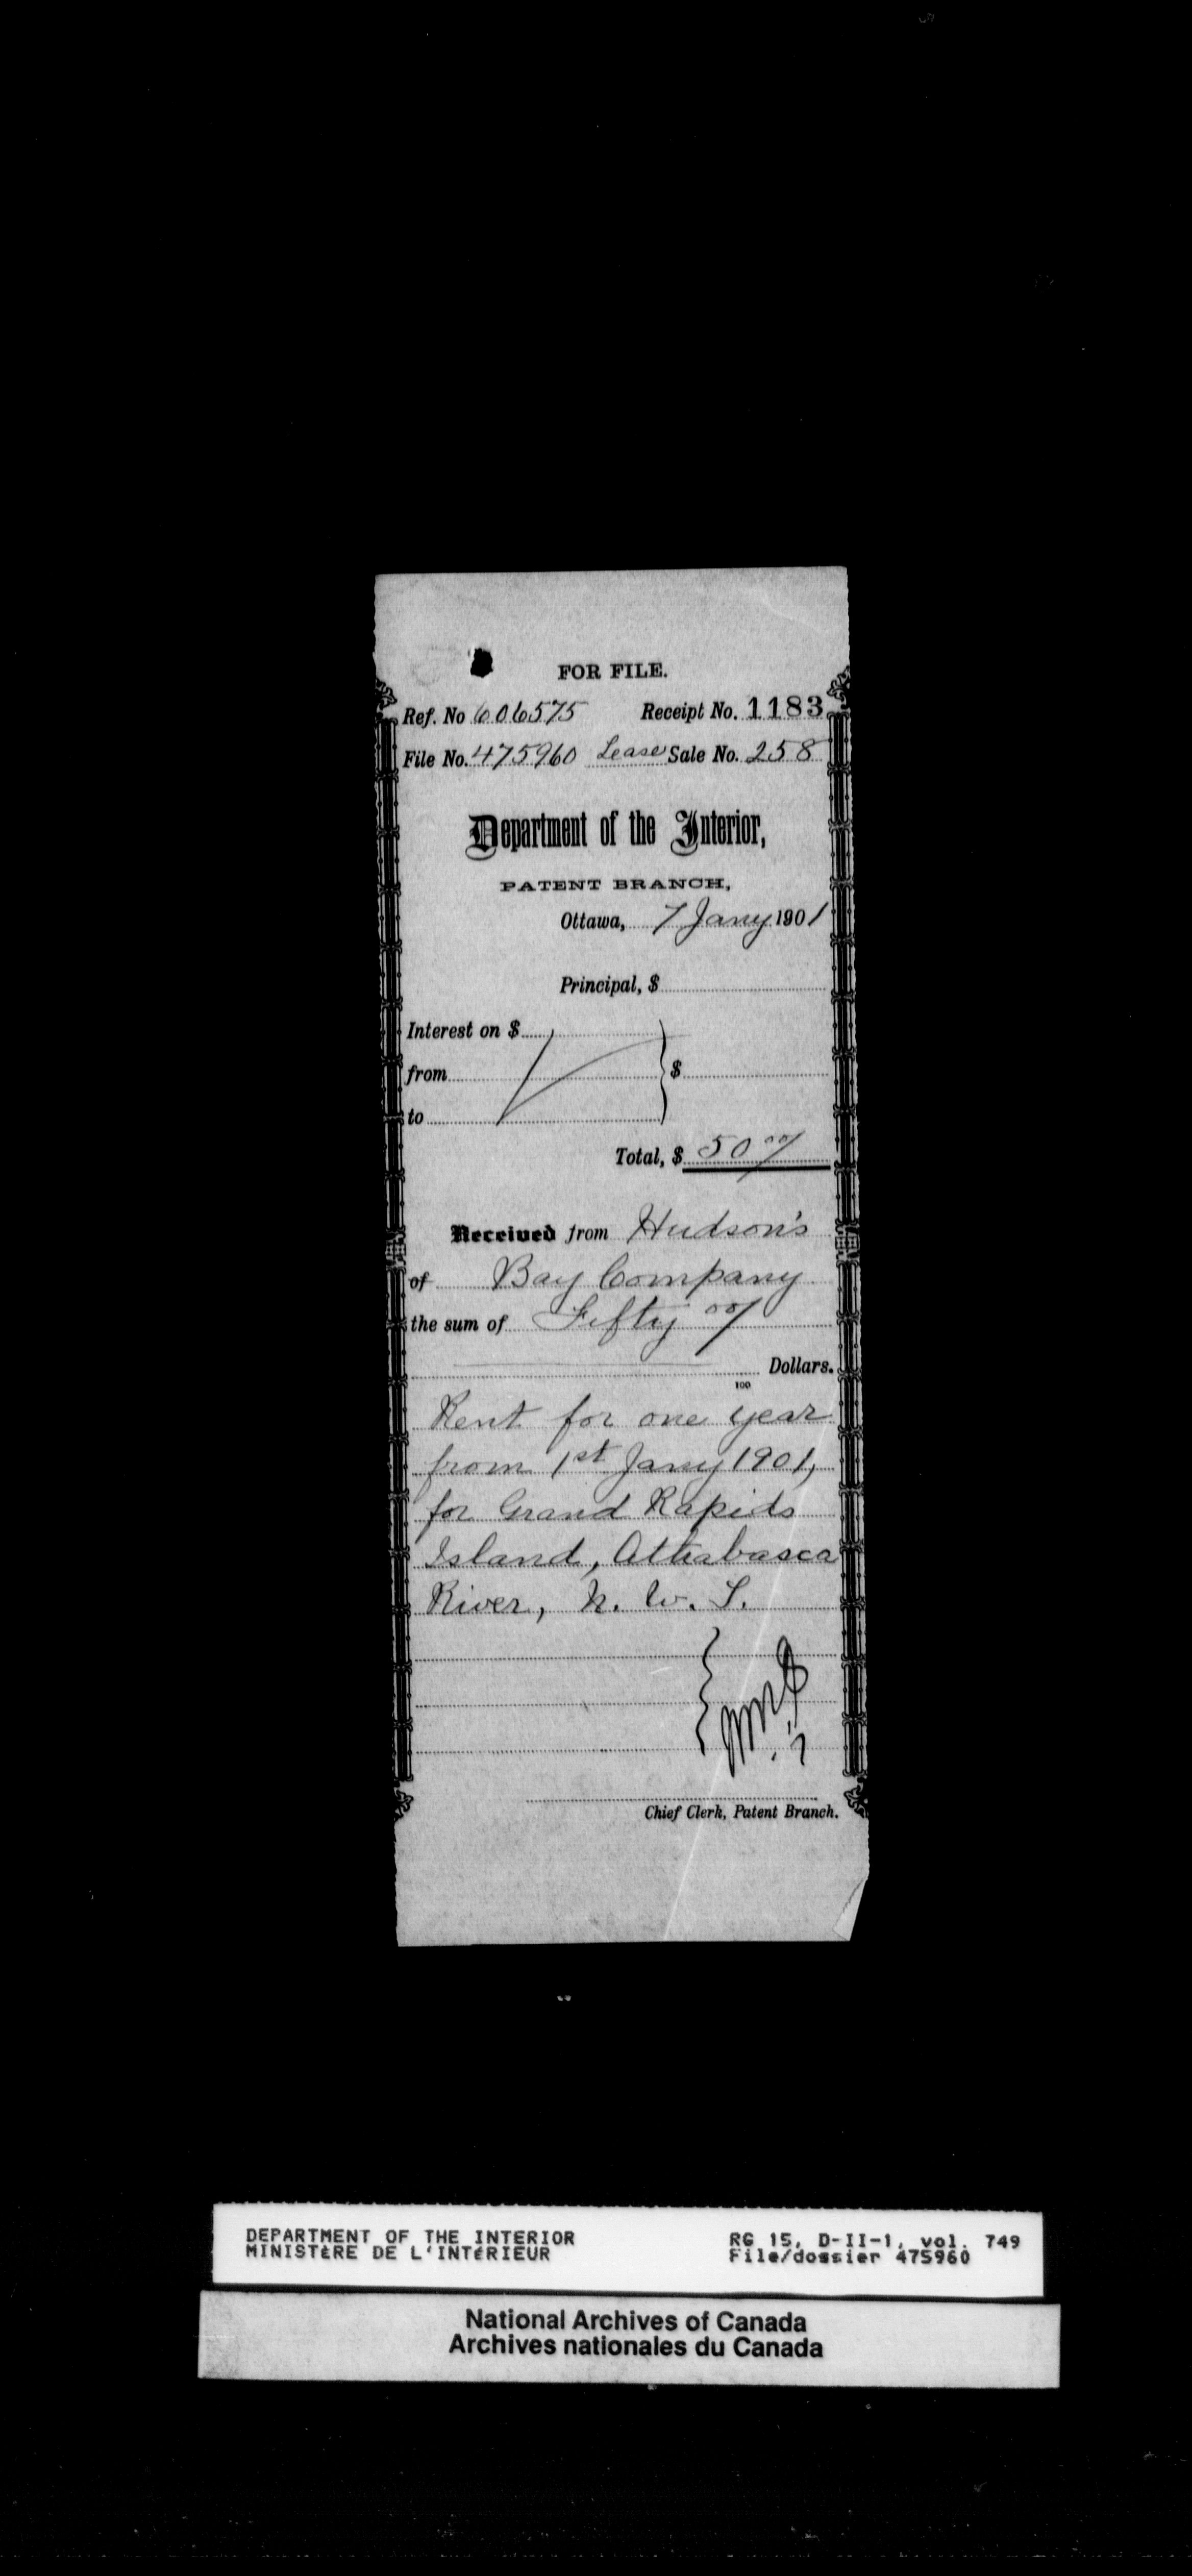 FOR FILE.
Ref. No 606575 Receipt No. 1183
File No. 475960 Lease Sale No. 258
Department of the Interior,
PATENT BRANCH,
Ottawa, 7 Jany 1901
Principal, $
Interest on $
from $
to
Total, $ 50 00/
Received from Hudson's
of Bay Company
the sum of Fifty 00/
Dollars.
100
Rent for one year
from 1st Jany 1901,
for Grand Rapids
Island, Athabasca
River, N. W. T.
Chief Clerk, Patent Branch.
DEPARTMENT OF THE INTERIOR RG 15, D-II-1, vol. 749
MINISTÈRE DE L'INTÉRIEUR File/dossier 475960
National Archives of Canada
Archives nationales du Canada